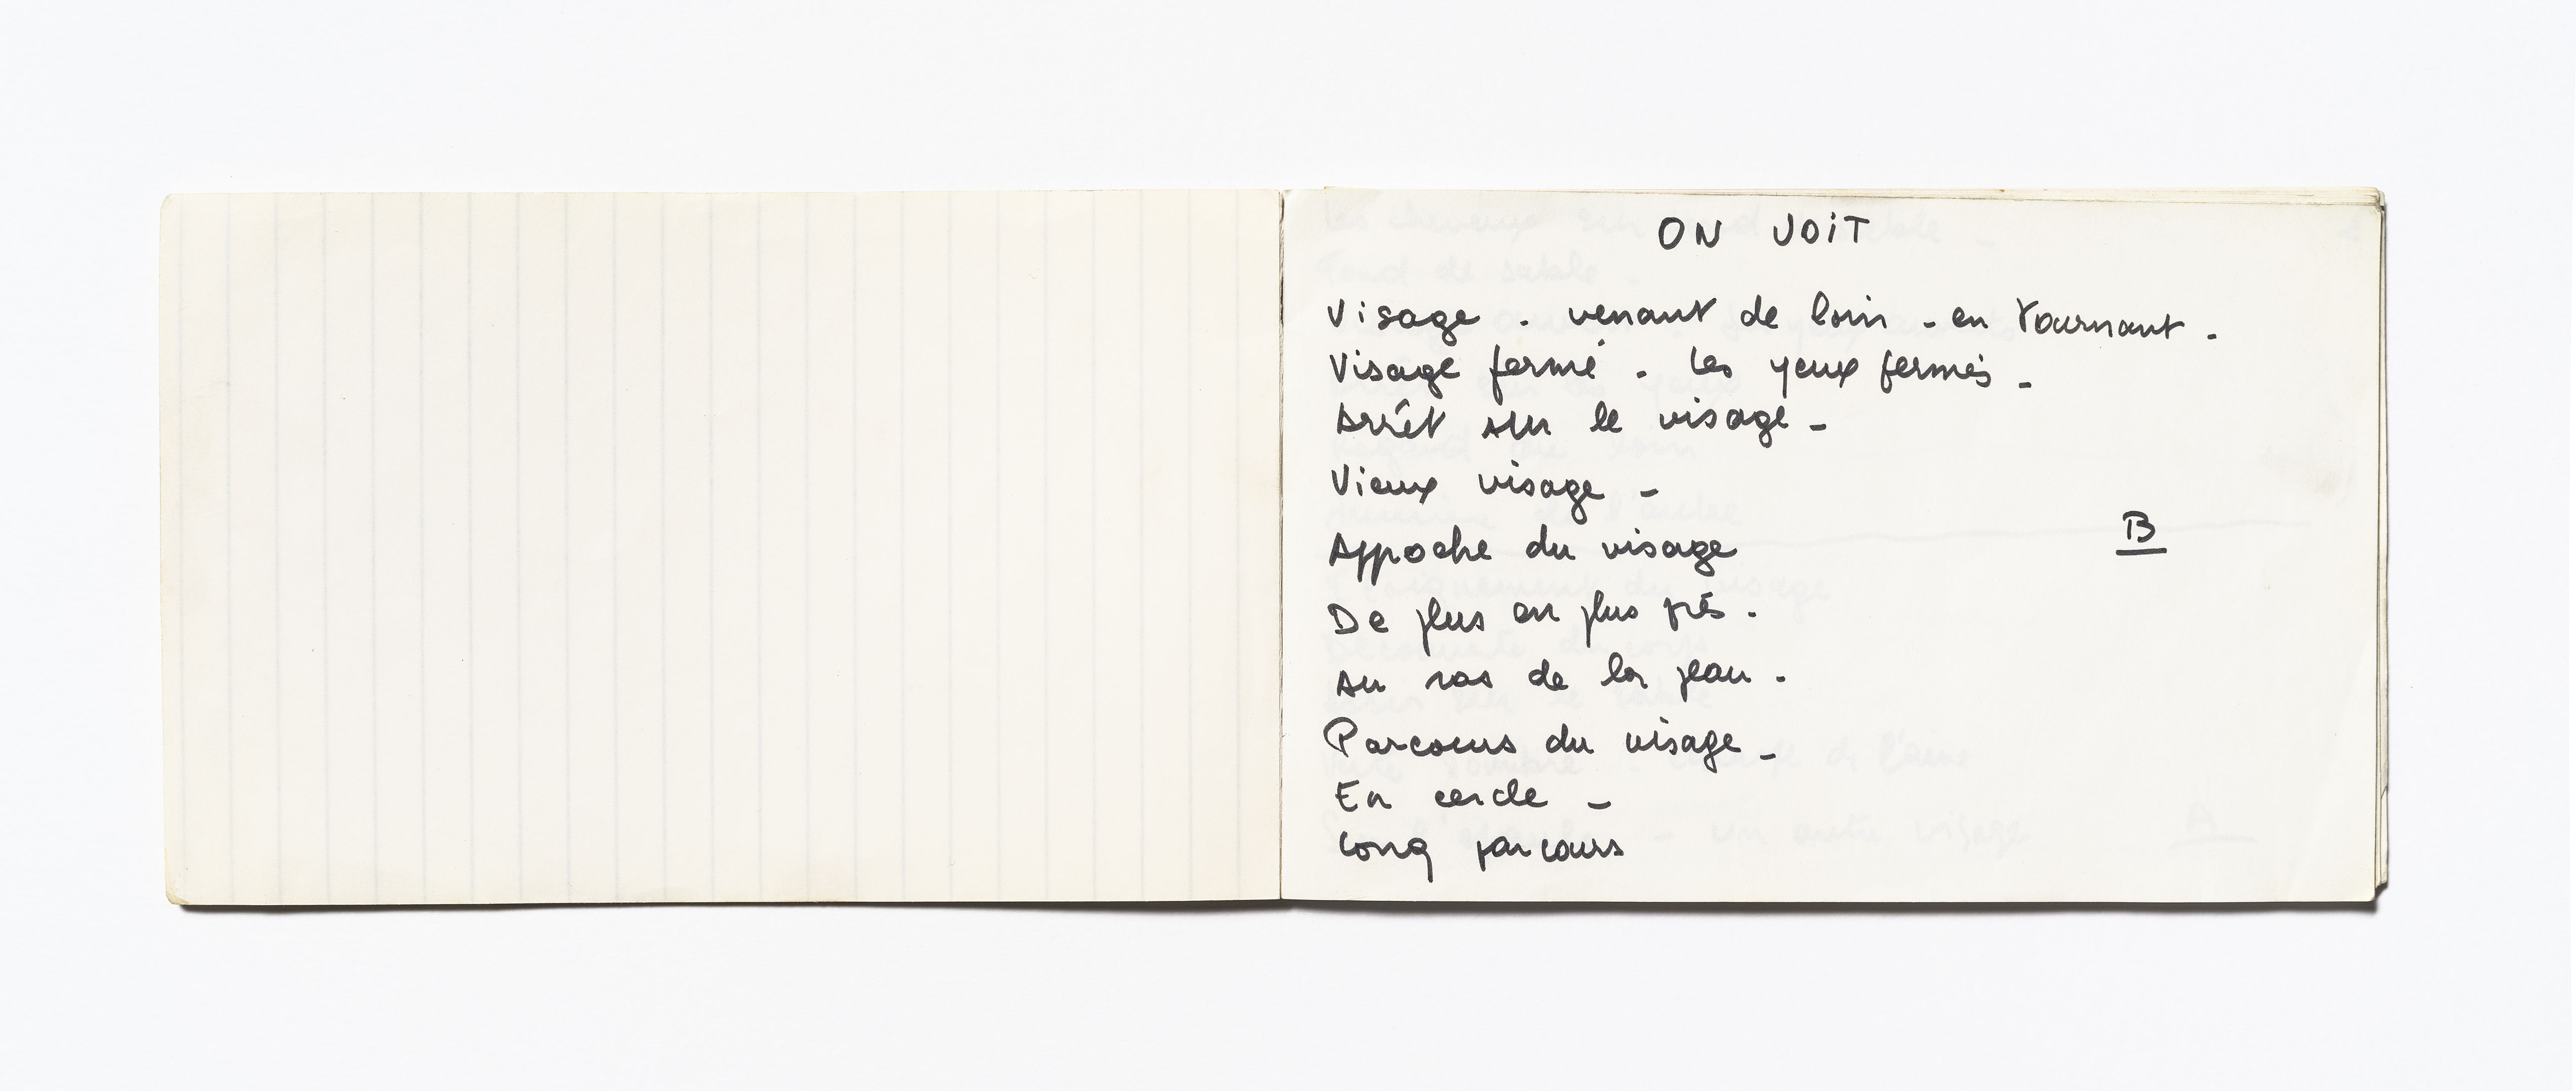 ON VOIT
Visage - venant de loin - en tournant -
Visage fermé - les yeux fermés -
Arrêt sur le visage -
Vieux visage -
Appoche du visage
B
De plus en plus près -
Au ras de la peau -
Parcours du visage -
En cercle -
Long parcours